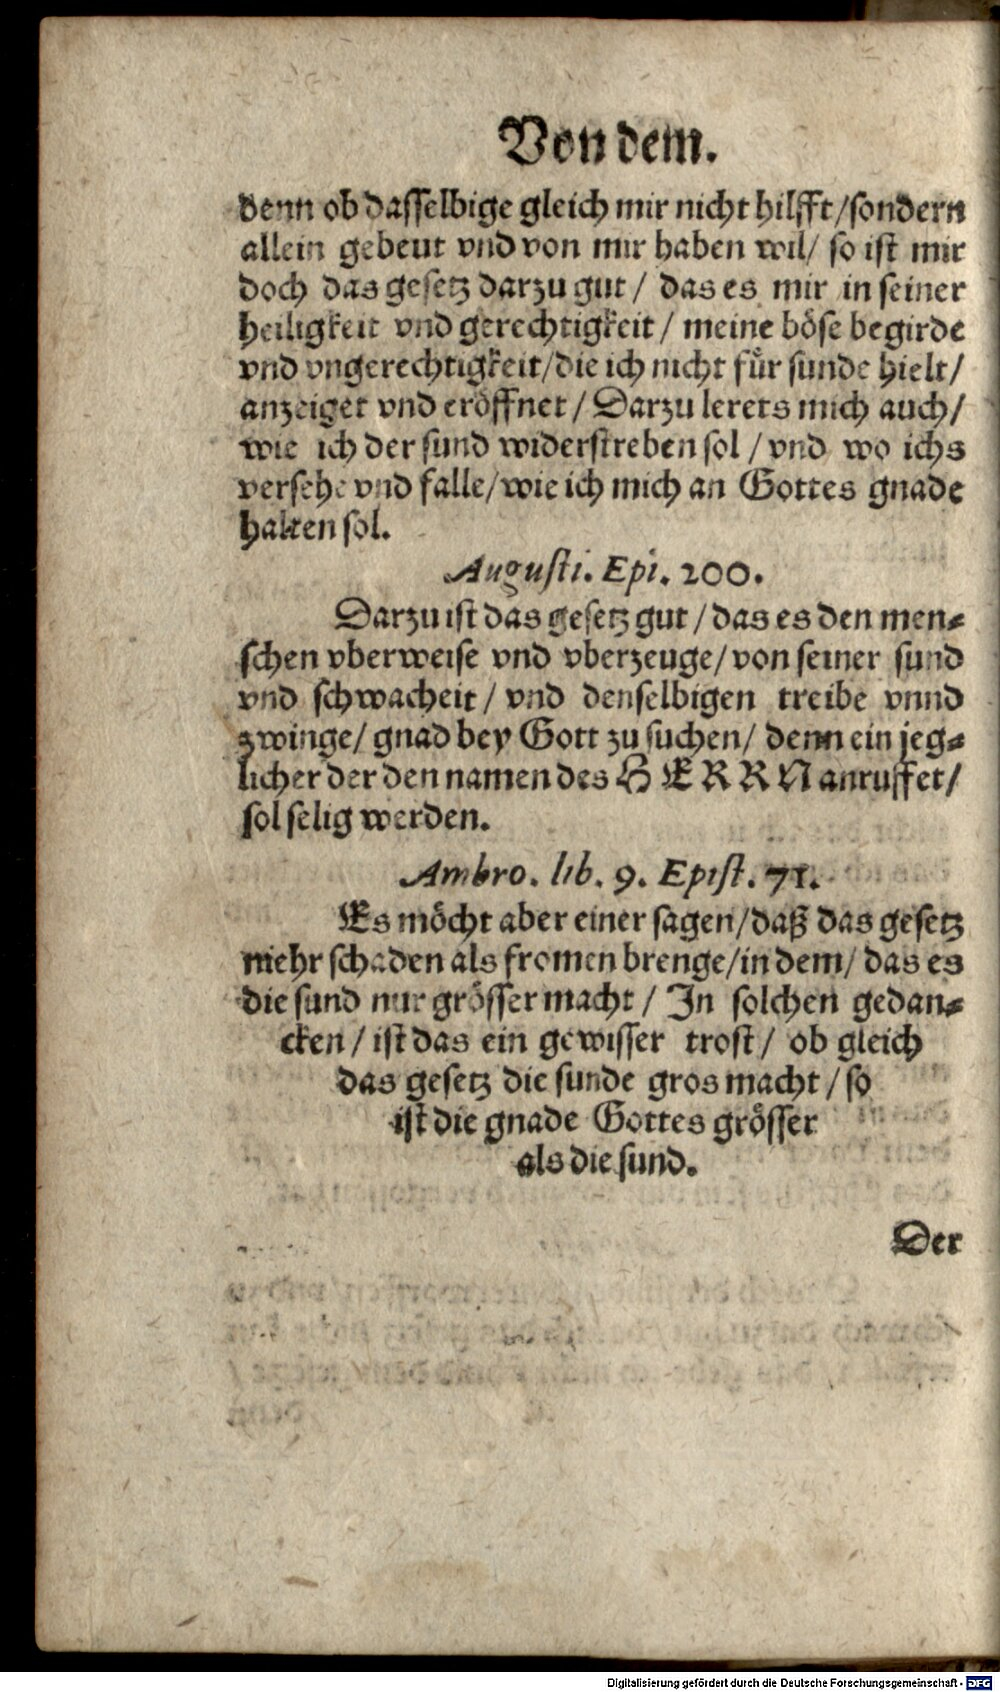 Von dem.
denn ob dasselbige gleich mir nicht hilfft/sondern
allein gebeut vnd von mir haben wil/ so ist mir
doch das gesetz darzu gut/ das es mir in seiner
heiligkeit vnd gerechtigkeit/ meine böse begirde
vnd vngerechtigkeit/die ich nicht für sunde hielt/
anzeiget vnd eröffnet/ Darzu lerets mich auch/
wie ich der sund widerstreben sol/ vnd wo ichs
versehe vnd falle/wie ich mich an Gottes gnade
halten sol.
Augusti. Epi. 200.
Darzu ist das gesetz gut/ das es den men⸗
schen vberweise vnd vberzeuge/ von seiner sund
vnd schwacheit/ vnd denselbigen treibe vnnd
zwinge/ gnad bey Gott zu suchen/ denn ein jeg⸗
licher der den namen des HERRN anruffet/
sol selig werden.
Ambro. lib. 9. Epist. 71.
Es möcht aber einer sagen/daß das gesetz
mehr schaden als fromen brenge/in dem/ das es
die sund nur grösser macht/ In solchen gedan⸗
cken/ ist das ein gewisser trost/ ob gleich
das gesetz die sunde gros macht/ so
ist die gnade Gottes grösser
als die sund.
Der
Digitalisierung gefördert durch die Deutsche Forschungsgemeinschaft - DFG